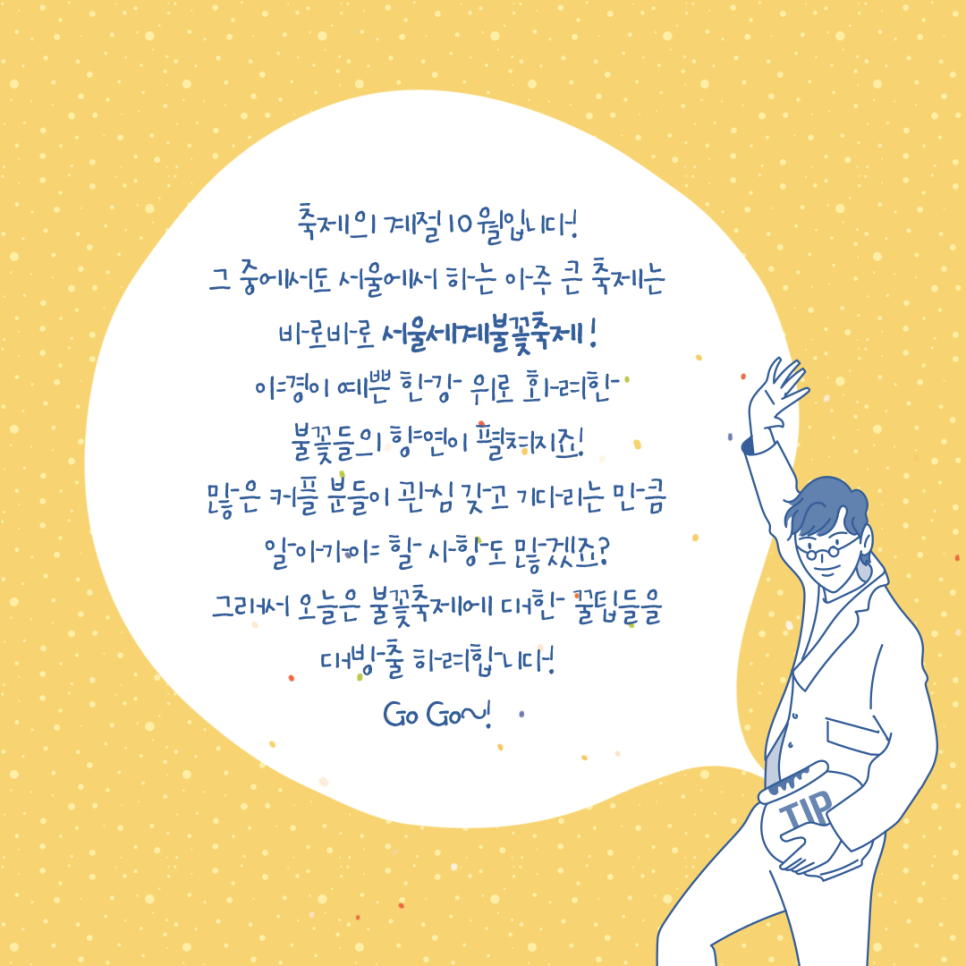 축제의 계절 10월입니다!
그 중에서도 서울에서 하는 아주 큰 축제는
바로바로 서울세계불꽃축제!
야경이 예쁜 한강 위로 화려한
불꽃들의 향연이 펼쳐지죠!
많은 커플 분들이 관심 갖고 기다리는 만큼
알아가야 할 사항도 많겠죠?
그래서 오늘은 불꽃축제에 대한 꿀팁들을
대방출 하려합니다!
Go Go~!
TIP